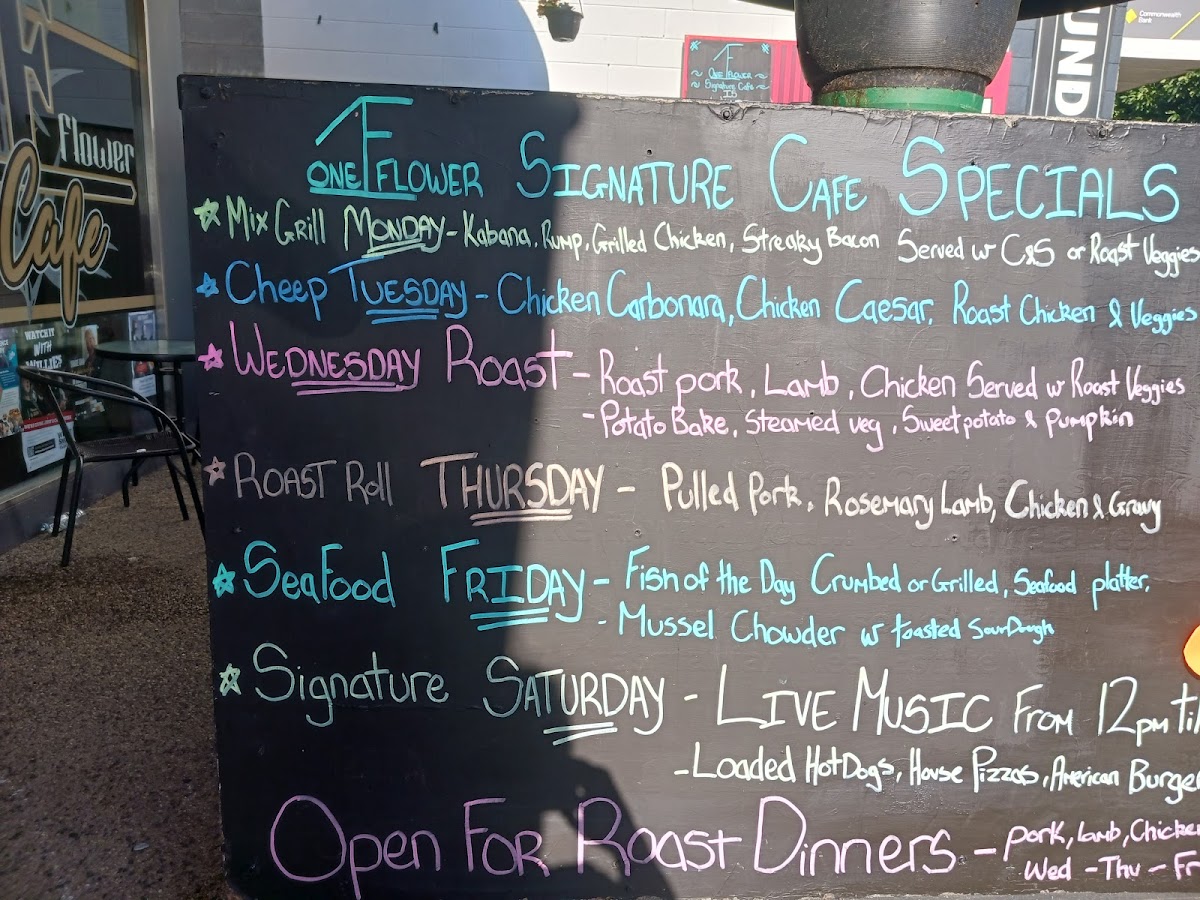 Commonwealth
Bank
UND
1F
One Flower
Signature Cafe
flower
Cafe
WATCH IT
WITH
WILLIES
ONE FLOWER SIGNATURE CAFE SPECIALS
Mix Grill MONDAY - Kabana, Rump, Grilled Chicken, Streaky Bacon Served w C&S or Roast Veggies
Cheep TUESDAY - Chicken Carbonara, Chicken Caesar, Roast Chicken & Veggies
WEDNESDAY ROAST - Roast pork, Lamb, Chicken Served w Roast Veggies
- Potato Bake, Steamed veg, Sweet potato & Pumpkin
ROAST Roll THURSDAY - Pulled Pork, Rosemary Lamb, Chicken & Gravy
Seafood FRIDAY - Fish of the Day Crumbed or Grilled, Seafood platter,
- Mussel Chowder w toasted SourDough
Signature SATURDAY - LIVE MUSIC From 12pm Til
- Loaded HotDogs, House Pizzas, American Burge
Open For Roast Dinners - Pork, Lamb, Chicken
Wed - Thu - Fr